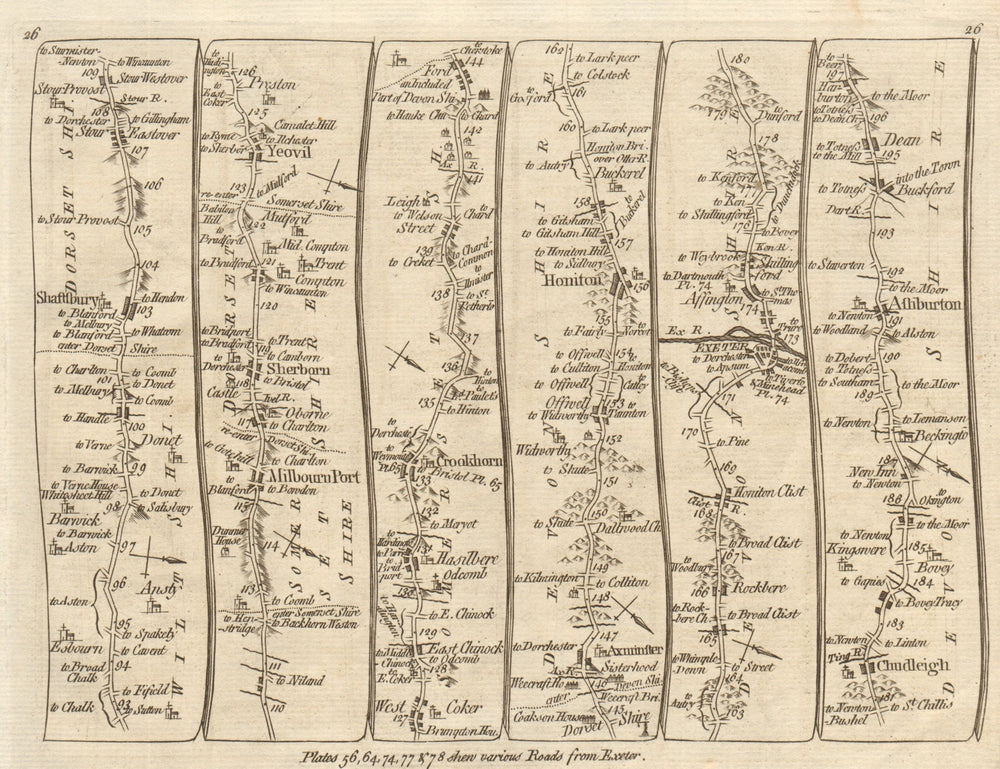 26
26
to Sturmister-
Newton
to Wincaunton
109
Stour Westover
Stour Provost
Stour R.
108
to Dorchester
to Gillingham
Stour
Eastover
107
106
to Stour Provost
105
104
Shaftbury
to Hendon
103
to Blanford
to Melbury
to Blanford
to Whatown
enter Dorset Shire
to Charlton
to Coomb
101
to Donet
to Melbury
to Coomb
to Handle
100
Donet
to Verne
99
to Barwick
to Verne House
Whitesheet Hill
to Donet
98
to Salisbury
Barwick
to Barwick
97
Aston
96
Ansty
to Aston
95
to Spakely
Esbourn
to Cavent
to Broad
Chalk
94
to Fifield
to Chalk
93
to Sutton
DORSET SHI
WILT SHIRE
126
Preston
to East
Coker
125
Camalet Hill
to Ryme
to Ilchester
to Sherber
Yeovil
123
to Midford
re-enter
Somerset Shire
Babilon
Hill
Mutford
122
to Bradford
Mid. Compton
to Bradford
121
Trent
Compton
to Wincaunton
120
to Bridport
to Bradford
to Trent
to Camborn
to Dorchester
Sherborn
118
to Bristol
Castle
Ivel R.
Oborne
117
to Charlton
re-enter
Dorset Shire
to Goathill
to Charlton
Milbourn Port
to Blanford
to Bowdon
115
Dunner
House
114
113
to Coomb
enter Somerset Shire
to Hen-
stridge
to Backhorn Weston
111
to Niland
110
DORSET SHIRE
SOMERSET SHIRE
to
Chevstoke
144
Ford
an Included
Part of Devon Shi.
to Hauke Chu.
to Chard
142
Ax R.
141
Leigh
to Welson
to Chard
Street
139
to Chard
Common
to Creket
to Ilmister
138
to St.
Petherto
137
136
to Hinton
St. Paulet's
135
to Hinton
to Dorchester
to Weymouth
Pl. 65
Crookhorn
133
to Bristol Pl. 65
132
to Mayot
to Hardington
131
to Bridport
Haslbere
Odcomb
130
to Hardington
to E. Chinock
129
East Chinock
to Middle
Chinock
to Odcomb
128
to E. Coker
West
Coker
127
Brumpton Hou.
SOMERSET SHI
162
to Lark peer
to Colstock
161
to Gosford
160
to Lark peer
Honiton Bri.
over Otter R.
to Autry
Buckerel
158
to Buckerel
to Gitsham
to Gitsham Hill
157
to Honiton Hill
to Sidbury
Honiton
156
155
to Fairly
to Norcot
to Offwell
154
to Culliton
to Honiton
to Offwell
to Cotley
Offwell
153
to Widworthy
to Taunton
Widworthy
152
to Shute
151
to Shute
150
Dallwood Ch.
149
to Kilmington
to Colliton
148
147
to Dorchester
Axminster
Ax R.
Sisterhood
Weecraft Ho.
146
Devon Shi.
enter
Weecraft Bri.
Coakson House
145
Dorset
Shire
I
DEVON SHIRE
180
179
Dunford
178
to Kenford
177
to Ken
to Shillingford
to Dunchidock
176
to Bever
Ken R.
to Weybrook
Shilling-
ford
to Dartmouth
Pl. 74
to St. Tho-
mas
Affington
174
to Truro
173
Ex R.
EXETER
to Dorchester
to Apsum
to Tiverto.
Minehead
Pl. 74
171
170
to Pine
169
Honiton Clist
Clist
R.
168
to Broad Clist
167
to Woodbury
166
Rockbere
to Rock-
bere Ch.
to Broad Clist
165
to Whimple
Down
to Street
164
to Autry
163
DEVON SHIRE
to
Beer
197
to Har-
burton
to the Moor
to Totness
to Dean Ch.
196
Dean
to Totness
to the Mill
195
into the Town
to Totness
Buckford
Dart R.
193
to Staverton
192
to the Moor
Ashburton
to Newton
191
to Woodland
to Alston
to Dobert
190
to Totness
to Southam
to the Moor
189
to Newton
to Lemanson
Beckington
New Inn
to Newton
186
to Okington
to the Moor
to Newton
185
Kingswere
Bovey
to Gapies
184
to Bovey Tracy
183
to Newton
to Linton
Ting R.
Chudleigh
to Newton
Bushel
181
to St. Chillis
DEVON SHIRE
Plates 56, 64, 74, 77 & 78 shew various Roads from Exeter.